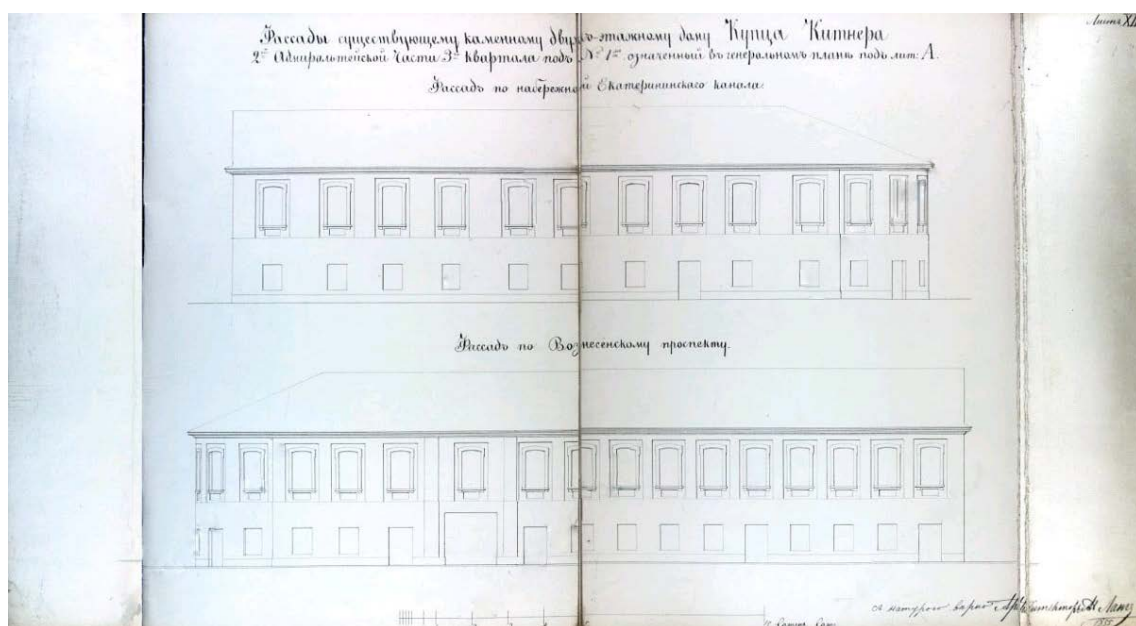 Листъ XL
Фассады существующему каменному двухъ этажному дому Купца Китнера
2й Адмиралтейской Части 3го квартала подъ № 1мъ означенный въ генеральномъ планѣ подъ лит: А.
Фассадъ по набережной Екатерининскаго канала:
Фассадъ по Вознесенскому проспекту.
съ натурою вѣрно Архитекторъ